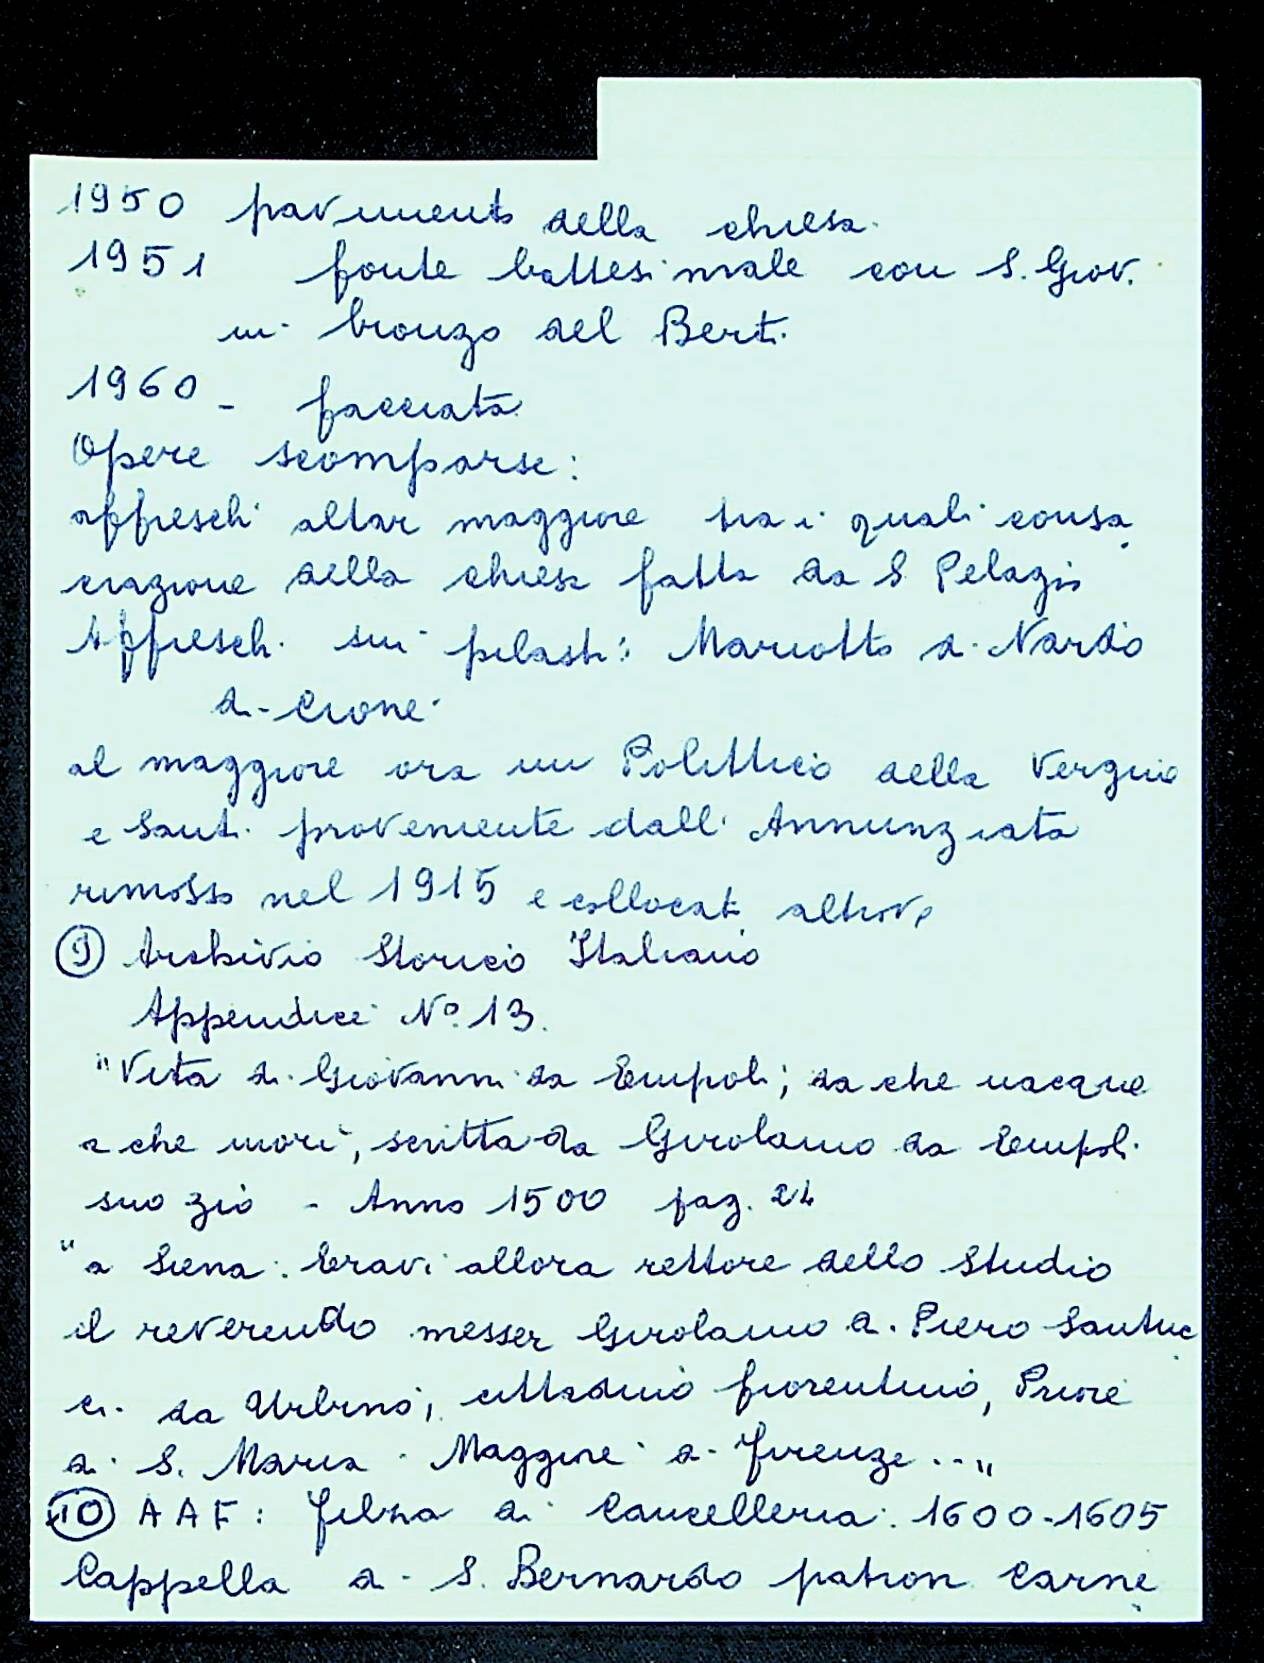 1950 pavimento della chiesa.
1951 fonte battesimale con S. Giov.
in bronzo del Berti.
1960 - facciata
Opere scomparse:
affreschi altar maggiore tra i quali consa
crazione della chiesa fatta da S Pelagio
Affreschi sui pilastri: Mariotto di Nardo
di Cione
al maggiore ora un Polittico della Vergine
e Santi proveniente dall'Annunziata
rimosso nel 1915 e collocati altrove
⑨ Archivio Storico Italiano
Appendice N° 13.
"Vita di Giovanni da Empoli; da che nacque
a che morì, scritta da Girolamo da Empoli
suo zio - Anno 1500 pag. 24
"a Siena. Eravi allora rettore dello Studio
il reverendo messer Girolamo di Piero Santuc
ci da Urbino, cittadino fiorentino, Priore
di S. Maria Maggiore di Firenze..."
⑩ AAF: Filza di Cancelleria: 1600-1605
Cappella di S. Bernardo patron Carne